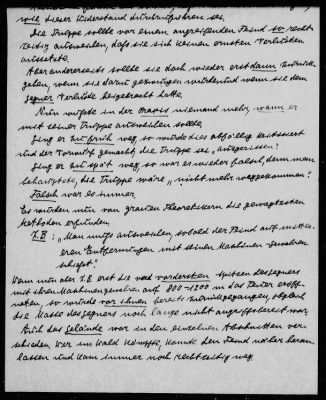 wie dieser Widerstand durchzuführen sei.
Die Truppe sollte vor einem angreifenden Feind so recht-
zeitig ausweichen, daß sie sich keinen ernsten Verlusten
aussetzte.
Aber andererseits sollte sie doch wieder erst dann zurück-
gehen, wenn sie dazu gezwungen würde und wenn sie dem
Gegner Verluste beigebracht hatte.
Nun wußte in der Praxis niemand mehr, wann er
mit seiner Truppe ausweichen sollte.
Ging er zu früh weg, so wurde dies abfällig kritisiert
und der Vorwurf gemacht, die Truppe sei „ausgerissen“.
Ging er zu spät weg, so war es wieder falsch, denn man
behauptete, die Truppe wäre „nicht mehr weggekommen“.
Falsch war es immer.
Es wurden nun von grauen Theoretikern die gewagtesten
Methoden erfunden.
Z.B: „Man muß ausweichen, sobald der Feind auf mittle-
ren Entfernungen mit seinen Maschinengewehren
schießt“.
Wenn nun aber z.B. erst die vordersten Spitzen des Gegners
mit ihren Maschinengewehren auf 800-1200 m das Feuer eröff-
neten, so wurde vor ihnen bereits zurückgegangen, obgleich
die Masse des Gegners noch lange nicht angriffsbereit war.
Auch das Gelände war in den einzelnen Abschnitten ver-
schieden. Wer im Wald kämpfte, konnte den Feind näher heran-
lassen und kam immer noch rechtzeitig weg.